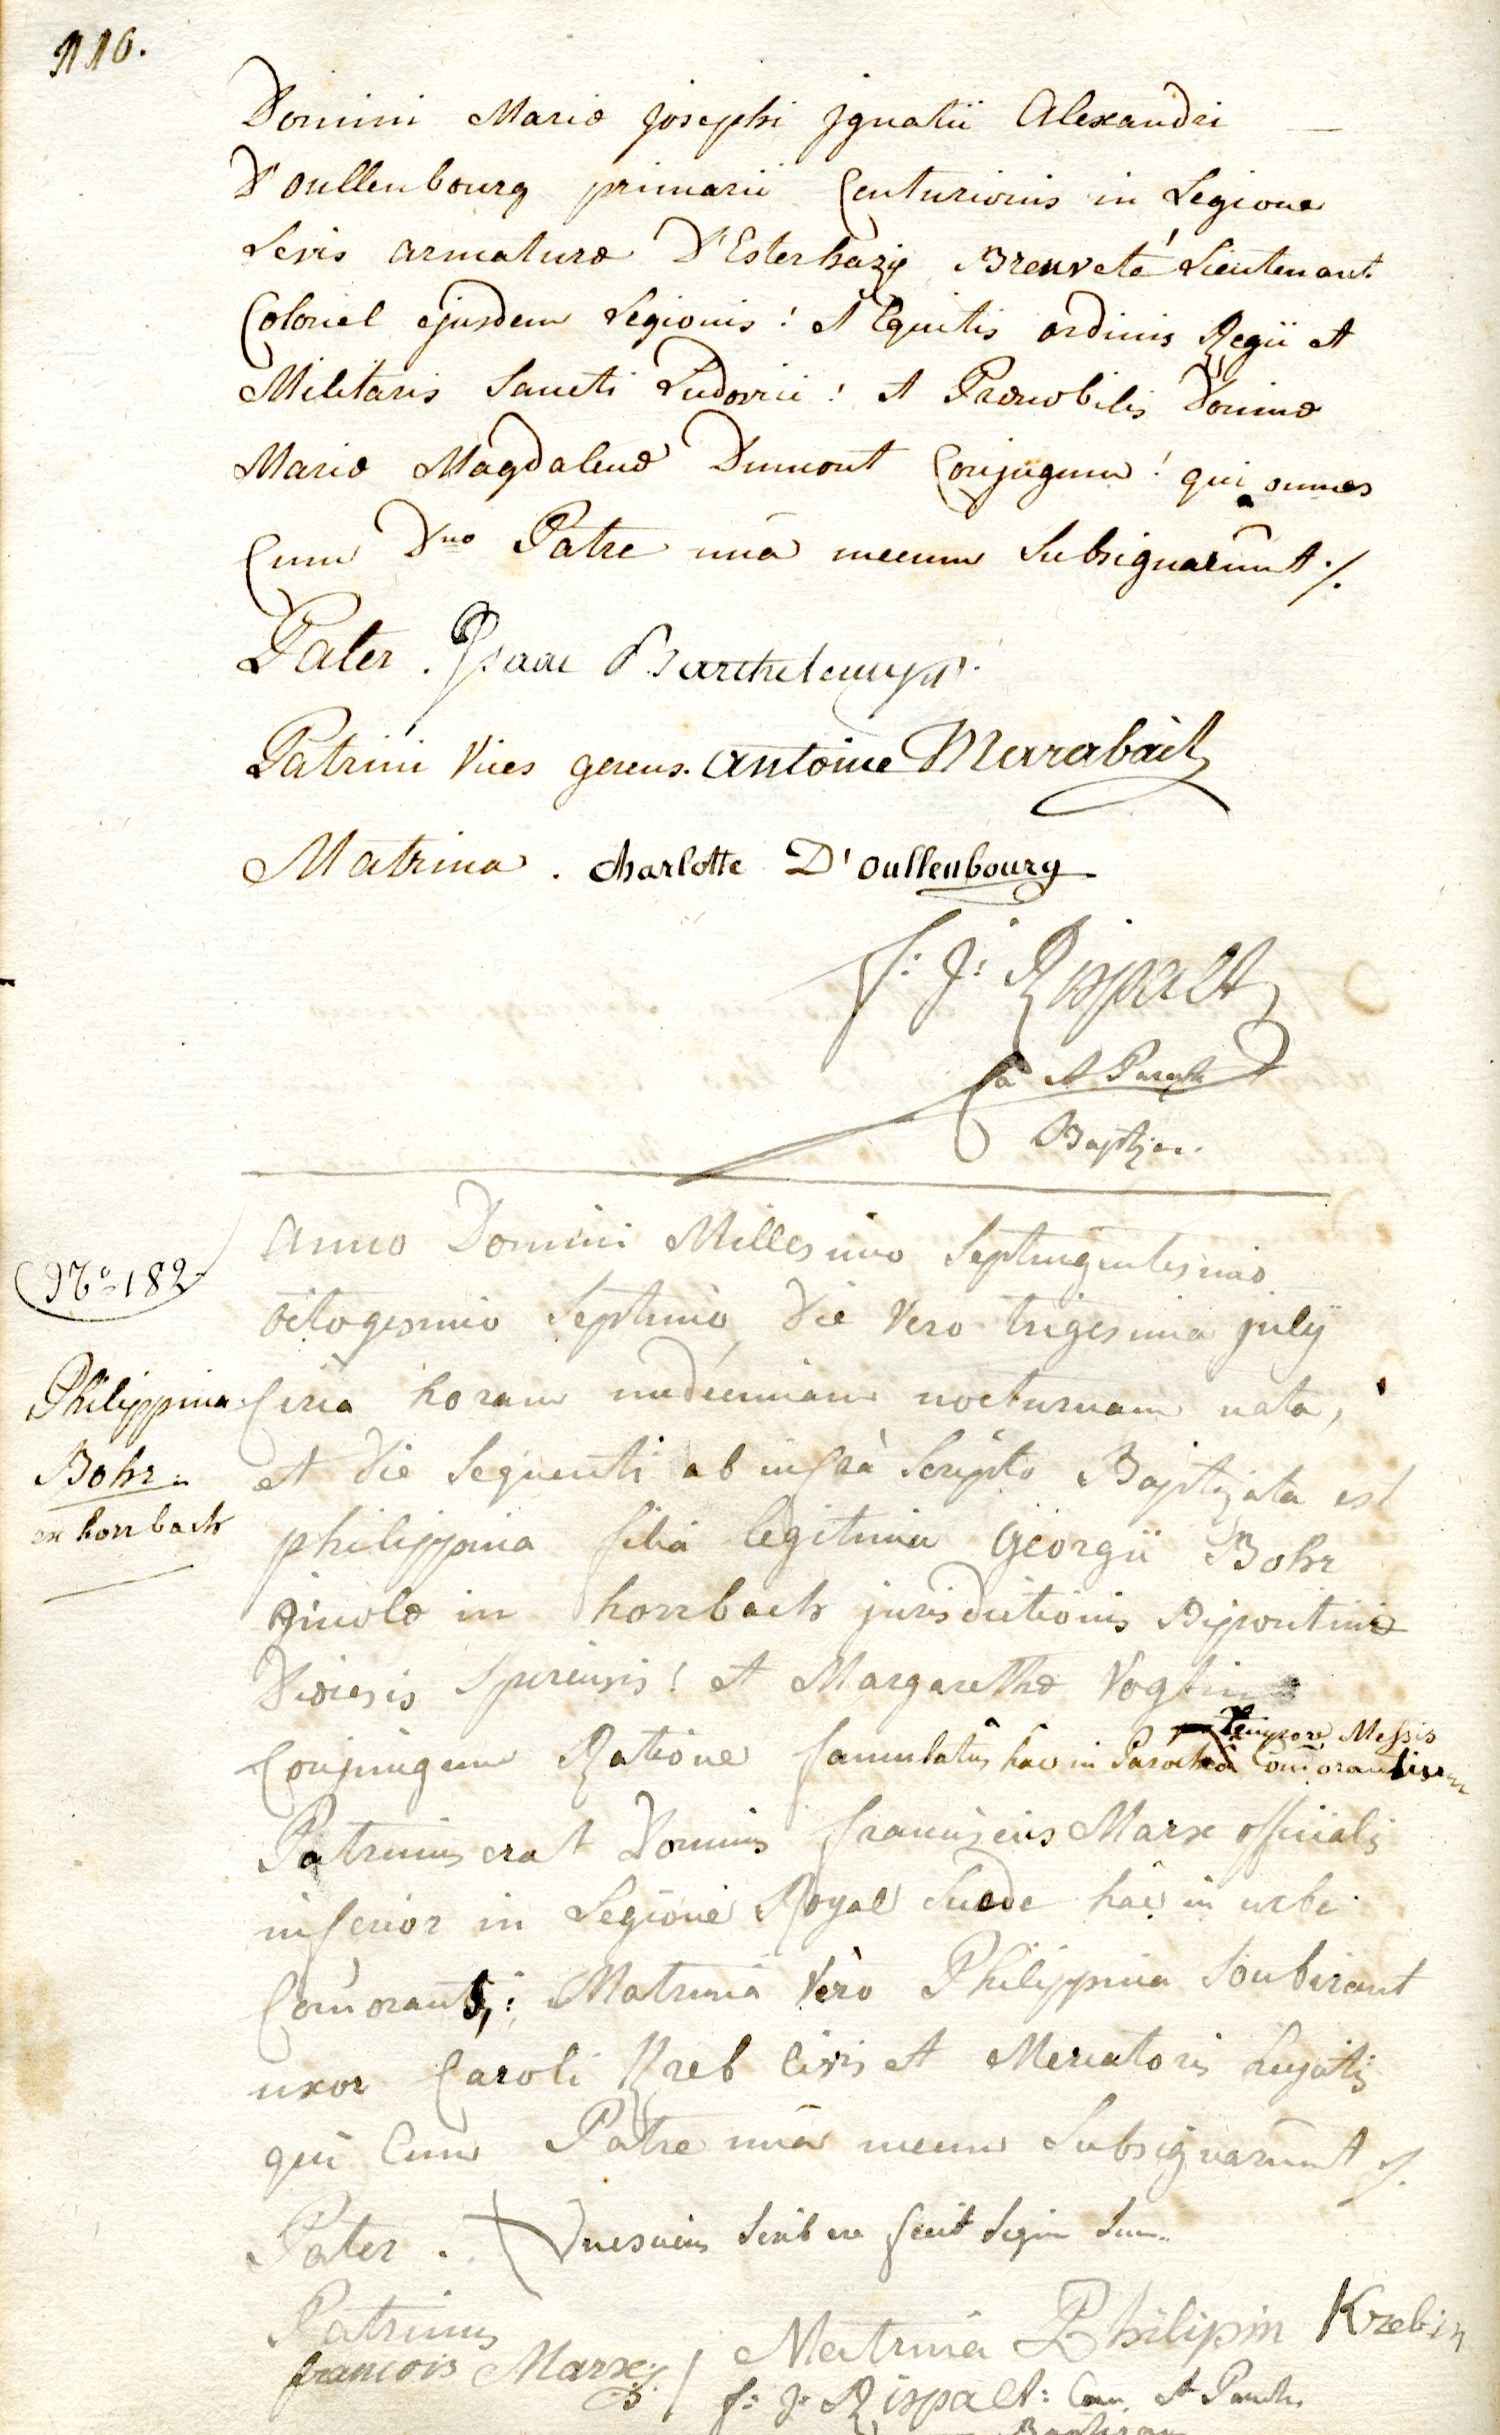 110.
Domini Mariæ Josephi Ignatii Alexandri
D'oullenbourg primarii Centurionis in Legione
Levis armaturæ D'Esterhazy Breuveté Lieutenant
Colonel ejusdem Legionis! et Equitis ordinis Regii et
Militaris Sancti Ludovici! et Prænobilis Dominæ
Mariæ Magdalenæ Dumont Conjugum! qui omnes
Cum Dno Patre unà mecum Subsignarunt ./.
Pater. Isaac Barthelemy
Patrini Vices gerens. antoine Marabail
Matrina. charlotte D'oullenbourg
f: J: Rispalt
Can et Paroch
Baptizans
Anno Domini Millesimo Septingentesimo
octogesimo Septimo, Die Vero trigesima july
Circa horam undecimam nocturnam nata,
et die Sequenti ab infrà Scripto Baptizata est
philippina filia legitima Georgii Bohr
Incolæ in horrbach jurisdictionis Bipontinæ
Diœcesis Spirensis! et Margarethæ Vogtin
tempore Messis
Conjugum Ratione famulatus hac in Parochiâ Comorantium
Patrinus erat Dominus franciscus Marx officialis
inferior in Legione Royal Suede hac in urbe
Comorans; Matrina Vero Philippina Soubirant
uxor Caroli Kreb Civis et Mercatoris hujatis
qui Cum Patre unà mecum Subsignarunt ./.
Pater. nescius Scribere fecit Signum Suum
Patrinus
francois Marx / Matrina Philipin Krebin
f: J: Rispalt: Can. et Paroch.
Baptizans
No 182
Philippina
Bohr
ex horrbach